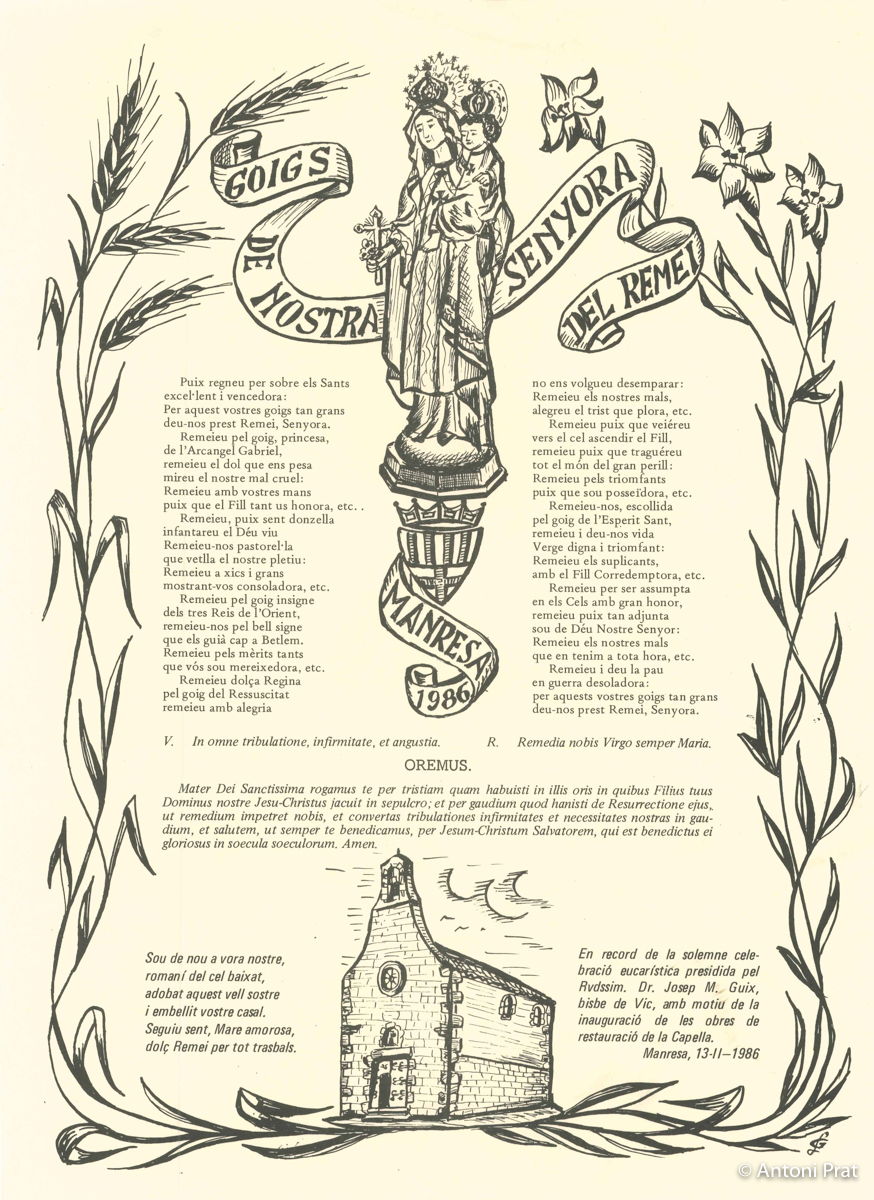 GOIGS
DE NOSTRA
SENYORA
DEL REMEI
Puix regneu per sobre els Sants
excel·lent i vencedora:
Per aquest vostres goigs tan grans
deu-nos prest Remei, Senyora.
Remeieu pel goig, princesa,
de l'Arcangel Gabriel,
remeieu el dol que ens pesa
mireu el nostre mal cruel:
Remeieu amb vostres mans
puix que el Fill tant us honora, etc. .
Remeieu, puix sent donzella
infantareu el Déu viu
Remeieu-nos pastorel·la
que vetlla el nostre pletiu:
Remeieu a xics i grans
mostrant-vos consoladora, etc.
Remeieu pel goig insigne
dels tres Reis de l'Orient,
remeieu-nos pel bell signe
que els guià cap a Betlem.
Remeieu pels mèrits tants
que vós sou mereixedora, etc.
Remeieu dolça Regina
pel goig del Ressuscitat
remeieu amb alegria
no ens volgueu desemparar:
Remeieu els nostres mals,
alegreu el trist que plora, etc.
Remeieu puix que veiéreu
vers el cel ascendir el Fill,
remeieu puix que traguéreu
tot el món del gran perill:
Remeieu pels triomfants
puix que sou posseïdora, etc.
Remeieu-nos, escollida
pel goig de l'Esperit Sant,
remeieu i deu-nos vida
Verge digna i triomfant:
Remeieu els suplicants,
amb el Fill Corredemptora, etc.
Remeieu per ser assumpta
en els Cels amb gran honor,
remeieu puix tan adjunta
sou de Déu Nostre Senyor:
Remeieu els nostres mals
que en tenim a tota hora, etc.
Remeieu i deu la pau
en guerra desoladora:
per aquests vostres goigs tan grans
deu-nos prest Remei, Senyora.
MANRESA
1986
V. In omne tribulatione, infirmitate, et angustia. R. Remedia nobis Virgo semper Maria.
OREMUS.
Mater Dei Sanctissima rogamus te per tristiam quam habuisti in illis oris in quibus Filius tuus
Dominus nostre Jesu-Christus jacuit in sepulcro; et per gaudium quod hanisti de Resurrectione ejus,
ut remedium impetret nobis, et convertas tribulationes infirmitates et necessitates nostras in gau-
dium, et salutem, ut semper te benedicamus, per Jesum-Christum Salvatorem, qui est benedictus ei
gloriosus in soecula soeculorum. Amen.
Sou de nou a vora nostre,
romaní del cel baixat,
adobat aquest vell sostre
i embellit vostre casal.
Seguiu sent, Mare amorosa,
dolç Remei per tot trasbals.
En record de la solemne cele-
bració eucarística presidida pel
Rvdssim. Dr. Josep M. Guix,
bisbe de Vic, amb motiu de la
inauguració de les obres de
restauració de la Capella.
Manresa, 13-II-1986
© Antoni Prat